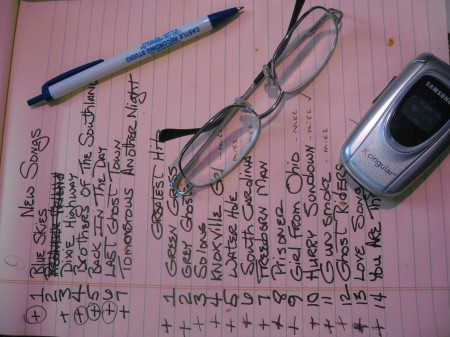 CASTLE RECORDING STUDIO
SAMSUNG
cingular
NEW SONGS
+ 1 BLUE SKIES
2
+ 3 DIXIE HIGHWAY
+ 4 BROTHERS OF THE SOUTHLAND
+ 5 BACK IN THE DAY
+ 6 LAST GHOST TOWN
+ 7 TOMORROWS ANOTHER NIGHT
HIT
+ 1 GREEN GRASS
+ 2 GREY GHOST
+ 3 SO LONG
+ 4 KNOXVILLE
+ 5 WATER HOLE
+ 6 SOUTH CAROLINA
+ 7 FREEBORN MAN
+ 8 PRISONER
+ 9 GIRL FROM OHIO
+ 10 HURRY SUNDOWN
+ 11 GUN SMOKE
+ 12 GHOST RIDERS
+ 13 LOVE SONG
+ 14 YOU ARE